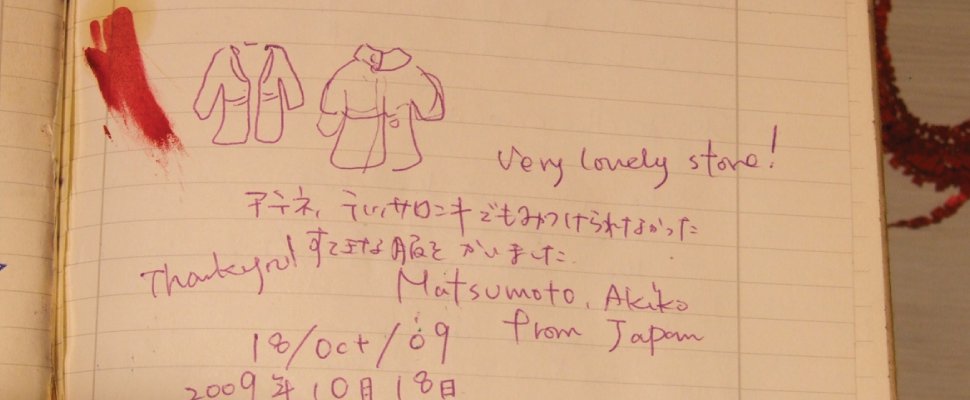 Very lovely store!
アテネ、テッサロニキでもみつけられなかった
すてきな服をかいました。
Thankyou!
Matsumoto, Akiko
from Japan
18/Oct/09
2009年10月18日